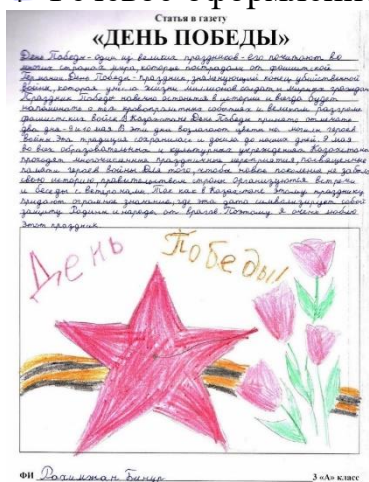 Статья в газету
«ДЕНЬ ПОБЕДЫ»
День Победы - один из великих праздников - его почитают во
многих странах мира, которые пострадали от фашистской
Германии День Победы - праздник, знаменующий конец убийственной
войны, которая унесла жизни миллионов солдат и мирных граждан
Праздник Победы навечно останется в истории и всегда будет
напоминать о тех кровопролитных событиях и великом разгроме
фашистских войск В Казахстане День Победы принято отмечать
два дня - 9 и 10 мая В эти дни возлагают цветы на могилы героев
войны Эта традиция сохранилась и дошла до наших дней 9 мая
во всех образовательных и культурных учреждениях Казахстана
проходят многочисленные праздничные мероприятия, посвященные
памяти героев войны Для того, чтобы новое поколение не забыло
свою историю правительством страны организуются встречи
и беседы с ветеранами Так как в Казахстане этому празднику
придают огромное значение, где эта дата символизирует собой
защиту Родины и народа, от врагов Поэтому Я очень люблю
этот праздник
День Победы!!
ФИ Рахимжан 3 «А» класс